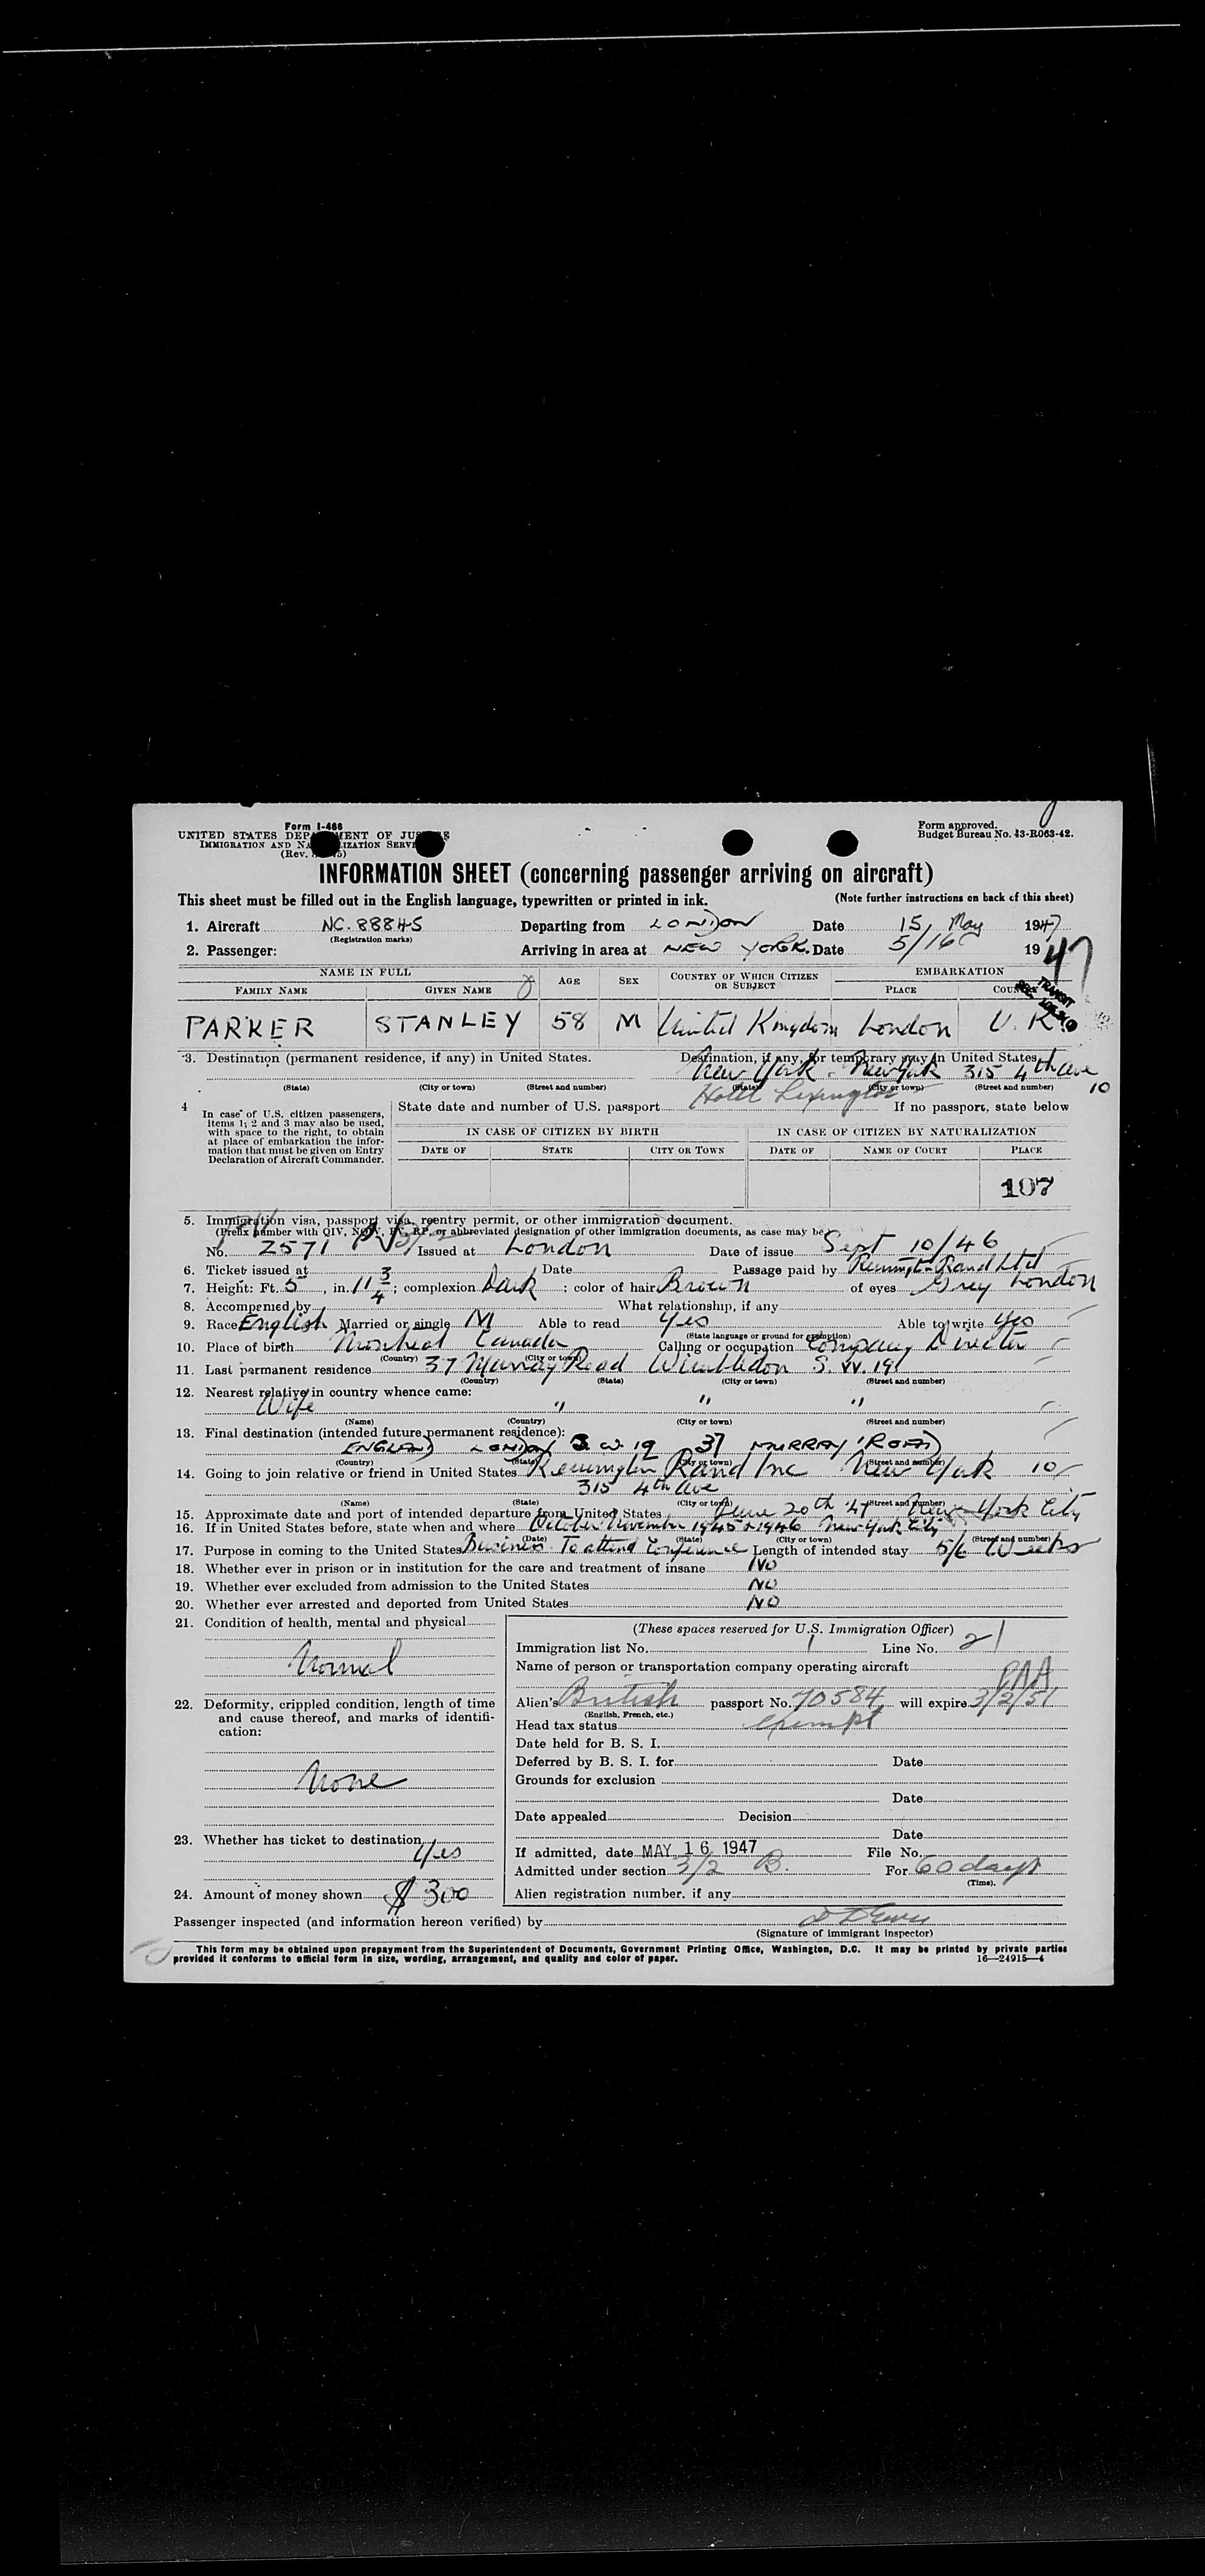 Form I-466
UNITED STATES DEPARTMENT OF JUSTICE
IMMIGRATION AND NATURALIZATION SERVICE
(Rev.
Form approved.
Budget Bureau No. 43-R063-42.
INFORMATION SHEET (concerning passenger arriving on aircraft)
This sheet must be filled out in the English language, typewritten or printed in ink. (Note further instructions on back of this sheet)
1. Aircraft NC. 88845 Departing from LONDON Date 15 May 1947
(Registration marks)
2. Passenger: Arriving in area at NEW YORK. Date 5/16 19 47
NAME IN FULL AGE SEX COUNTRY OF WHICH CITIZEN OR SUBJECT EMBARKATION
FAMILY NAME GIVEN NAME PLACE COUNTRY
TRANSIT
PARKER STANLEY 58 M United Kingdom London U.K.
3. Destination (permanent residence, if any) in United States. Destination, if any, for temporary stay in United States
New York. New York 315 4th Ave
(State) (City or town) (Street and number) (State) (City or town) (Street and number) 10
Hotel Lexington
4 In case of U.S. citizen passengers, items 1, 2 and 3 may also be used, with space to the right, to obtain at place of embarkation the information that must be given on Entry Declaration of Aircraft Commander.
State date and number of U.S. passport If no passport, state below
IN CASE OF CITIZEN BY BIRTH IN CASE OF CITIZEN BY NATURALIZATION
DATE OF STATE CITY OR TOWN DATE OF NAME OF COURT PLACE
107
5. Immigration visa, passport visa, reentry permit, or other immigration document.
(Prefix number with QIV, NQIV, PV, RP, or abbreviated designation of other immigration documents, as case may be)
No. 2571 PV 3/2 Issued at London Date of issue Sept 10/46
6. Ticket issued at Date Passage paid by Remington Rand Ltd
London
7. Height: Ft. 5 , in. 11 3/4 ; complexion Dark : color of hair Brown of eyes Grey
8. Accompanied by What relationship, if any
9. Race English Married or single M Able to read Yes Able to write Yes
(State language or ground for exemption)
10. Place of birth Montreal Canada Calling or occupation Company Director
(Country) (City or town)
11. Last permanent residence 37 Murray Road Wimbledon S.W. 19
(Country) (State) (City or town) (Street and number)
12. Nearest relative in country whence came:
Wife " " "
(Name) (Country) (City or town) (Street and number)
13. Final destination (intended future permanent residence):
ENGLAND LONDON S.W. 19 37 MURRAY ROAD
(Country) (State) (City or town) (Street and number)
14. Going to join relative or friend in United States Remington Rand Inc New York 10
315 4th Ave
(Name) (State) (City or town) (Street and number)
15. Approximate date and port of intended departure from United States June 20th '47 New York City
16. If in United States before, state when and where October November 1945 & 1946 New York City
(Date) (State) (City or town) (Street and number)
17. Purpose in coming to the United States Business To attend Conference Length of intended stay 5/6 Weeks
18. Whether ever in prison or in institution for the care and treatment of insane NO
19. Whether ever excluded from admission to the United States NO
20. Whether ever arrested and deported from United States NO
21. Condition of health, mental and physical
Normal
22. Deformity, crippled condition, length of time and cause thereof, and marks of identification:
None
23. Whether has ticket to destination
Yes
24. Amount of money shown $ 300
(These spaces reserved for U.S. Immigration Officer)
Immigration list No. 1 Line No. 21
Name of person or transportation company operating aircraft
PAA
Alien's British passport No. 70584 will expire 3/2/51
(English, French, etc.)
Head tax status exempt
Date held for B. S. I.
Deferred by B. S. I. for Date
Grounds for exclusion
Date
Date appealed Decision
Date
If admitted, date MAY 16 1947 File No.
Admitted under section 3/2 B. For 60 days
(Time).
Alien registration number, if any
Passenger inspected (and information hereon verified) by
(Signature of immigrant inspector)
This form may be obtained upon prepayment from the Superintendent of Documents, Government Printing Office, Washington, D.C. It may be printed by private parties
provided it conforms to official form in size, wording, arrangement, and quality and color of paper. 16—24915-4